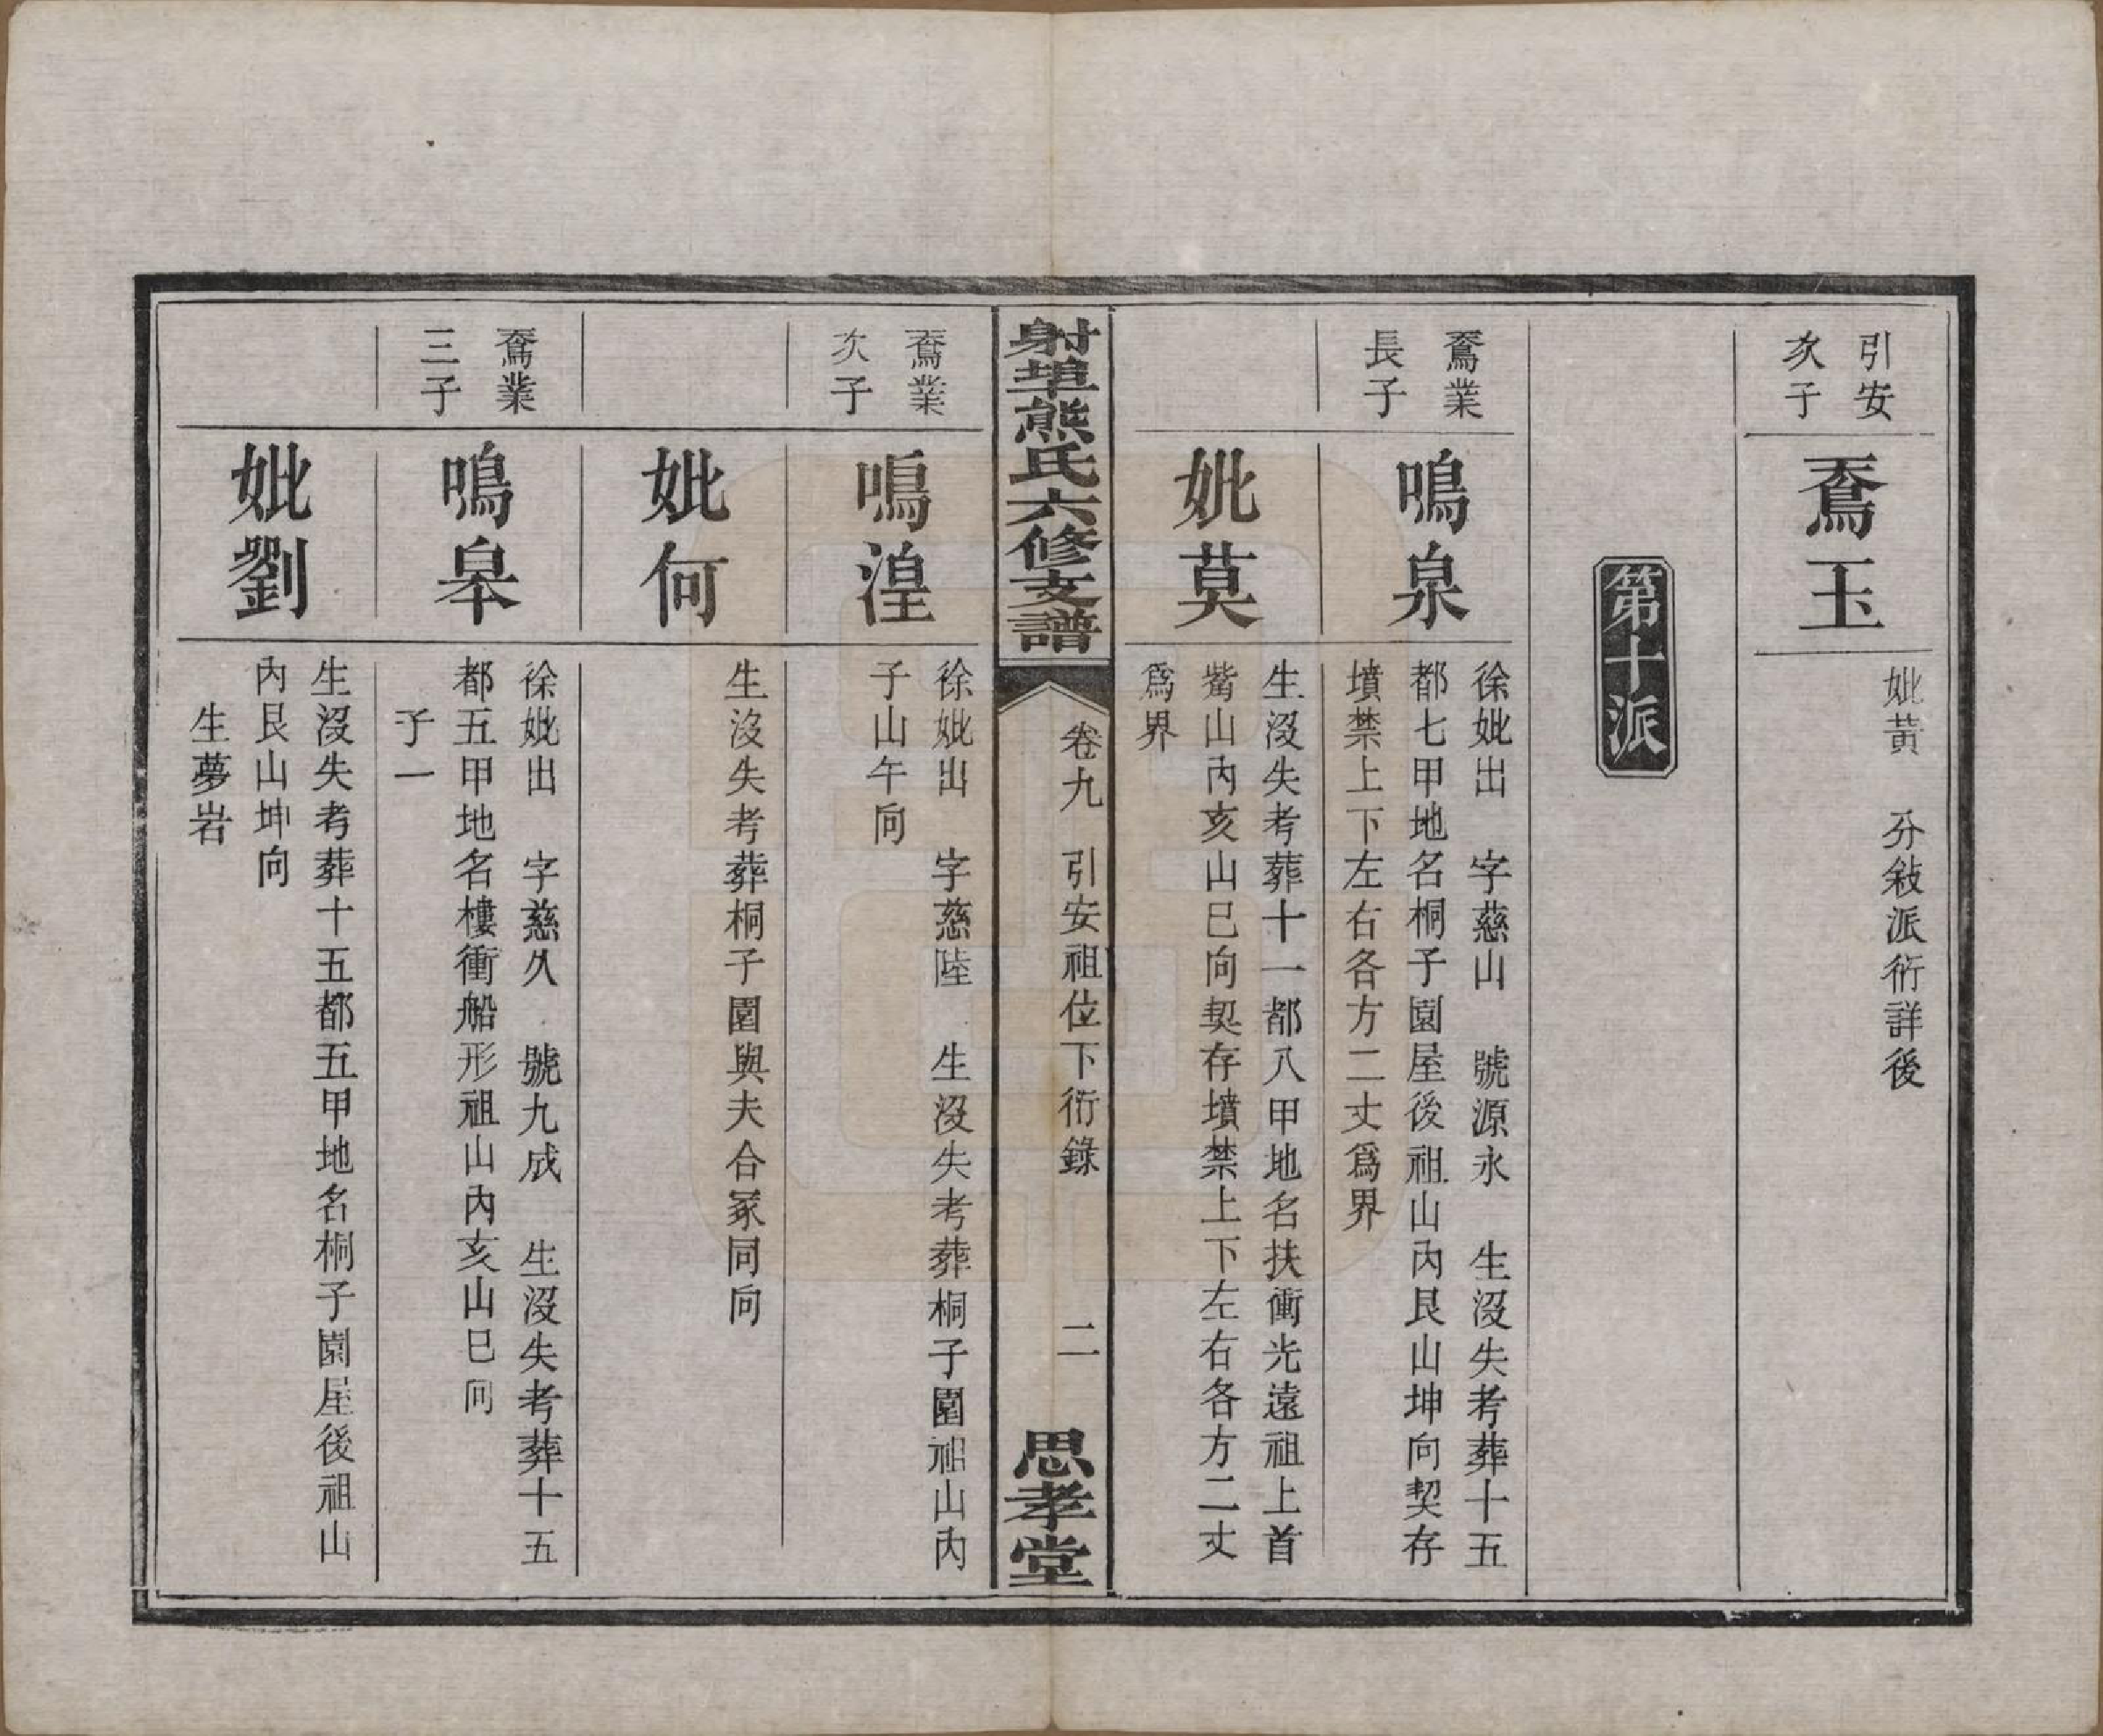 引安
次子
鴌玉
妣黃　分敍派衍詳後
第十派
鴌業
長子
鳴泉
徐妣出　字慈山　號源永　生沒失考葬十五
都七甲地名桐子園屋後祖山內艮山坤向契存
墳禁上下左右各方二丈爲界
妣莫
生沒失考葬十一都八甲地名扶衝光遠祖上首
嘴山內亥山巳向契存墳禁上下左右各方二丈
爲界
射埠熊氏六修支譜
卷九　引安祖位下衍錄　二
思孝堂
鴌業
次子
鳴湟
徐妣出　字慈陸　生沒失考葬桐子園祖山內
子山午向
妣何
生沒失考葬桐子園與夫合冢同向
鴌業
三子
鳴皋
徐妣出　字慈久　號九成　生沒失考葬十五
都五甲地名樓衝船形祖山內亥山巳向
子一
妣劉
生沒失考葬十五都五甲地名桐子園屋後祖山
內艮山坤向
生夢岩